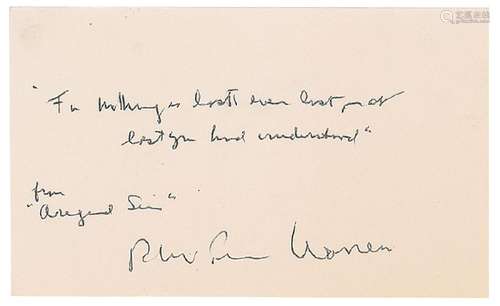 "For nothing is lost ever lost, at
last you had understood"
from
"Original Sin"
Robert Penn Warren